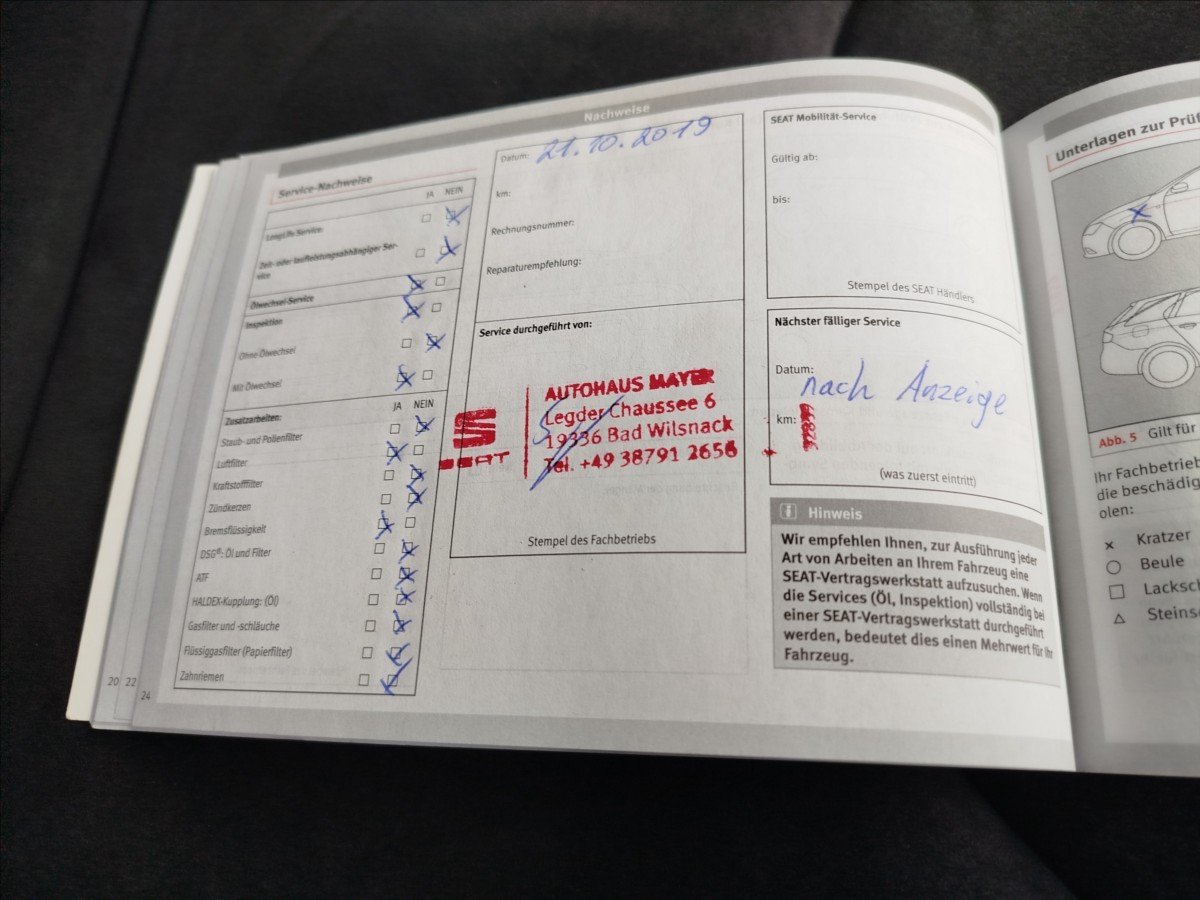 Nachweise
Service-Nachweise
JA NEIN
LongLife Service:
Zeit- oder laufleistungsabhängiger Ser-
vice
Ölwechsel-Service
Inspektion
Ohne Ölwechsel
Mit Ölwechsel
Zusatzarbeiten: JA NEIN
Staub- und Pollenfilter
Luftfilter
Kraftstofffilter
Zündkerzen
Bremsflüssigkeit
DSG®: Öl und Filter
ATF
HALDEX-Kupplung: (Öl)
Gasfilter und -schläuche
Flüssiggasfilter (Papierfilter)
Zahnriemen
20 22
24
Datum: 21.10.2019
km:
Rechnungsnummer:
Reparaturempfehlung:
Service durchgeführt von:
SEAT
AUTOHAUS MAYER
Legder Chaussee 6
19336 Bad Wilsnack
Tel. +49 38791 2656
Stempel des Fachbetriebs
SEAT Mobilität-Service
Gültig ab:
bis:
Stempel des SEAT Händlers
Nächster fälliger Service
Datum: nach Anzeige
km:
(was zuerst eintritt)
Hinweis
Wir empfehlen Ihnen, zur Ausführung jeder
Art von Arbeiten an Ihrem Fahrzeug eine
SEAT-Vertragswerkstatt aufzusuchen. Wenn
die Services (Öl, Inspektion) vollständig bei
einer SEAT-Vertragswerkstatt durchgeführt
werden, bedeutet dies einen Mehrwert für Ihr
Fahrzeug.
Unterlagen zur
Abb. 5 Gilt für
Ihr Fachbetrieb
die beschädig
olen:
Kratzer
Beule